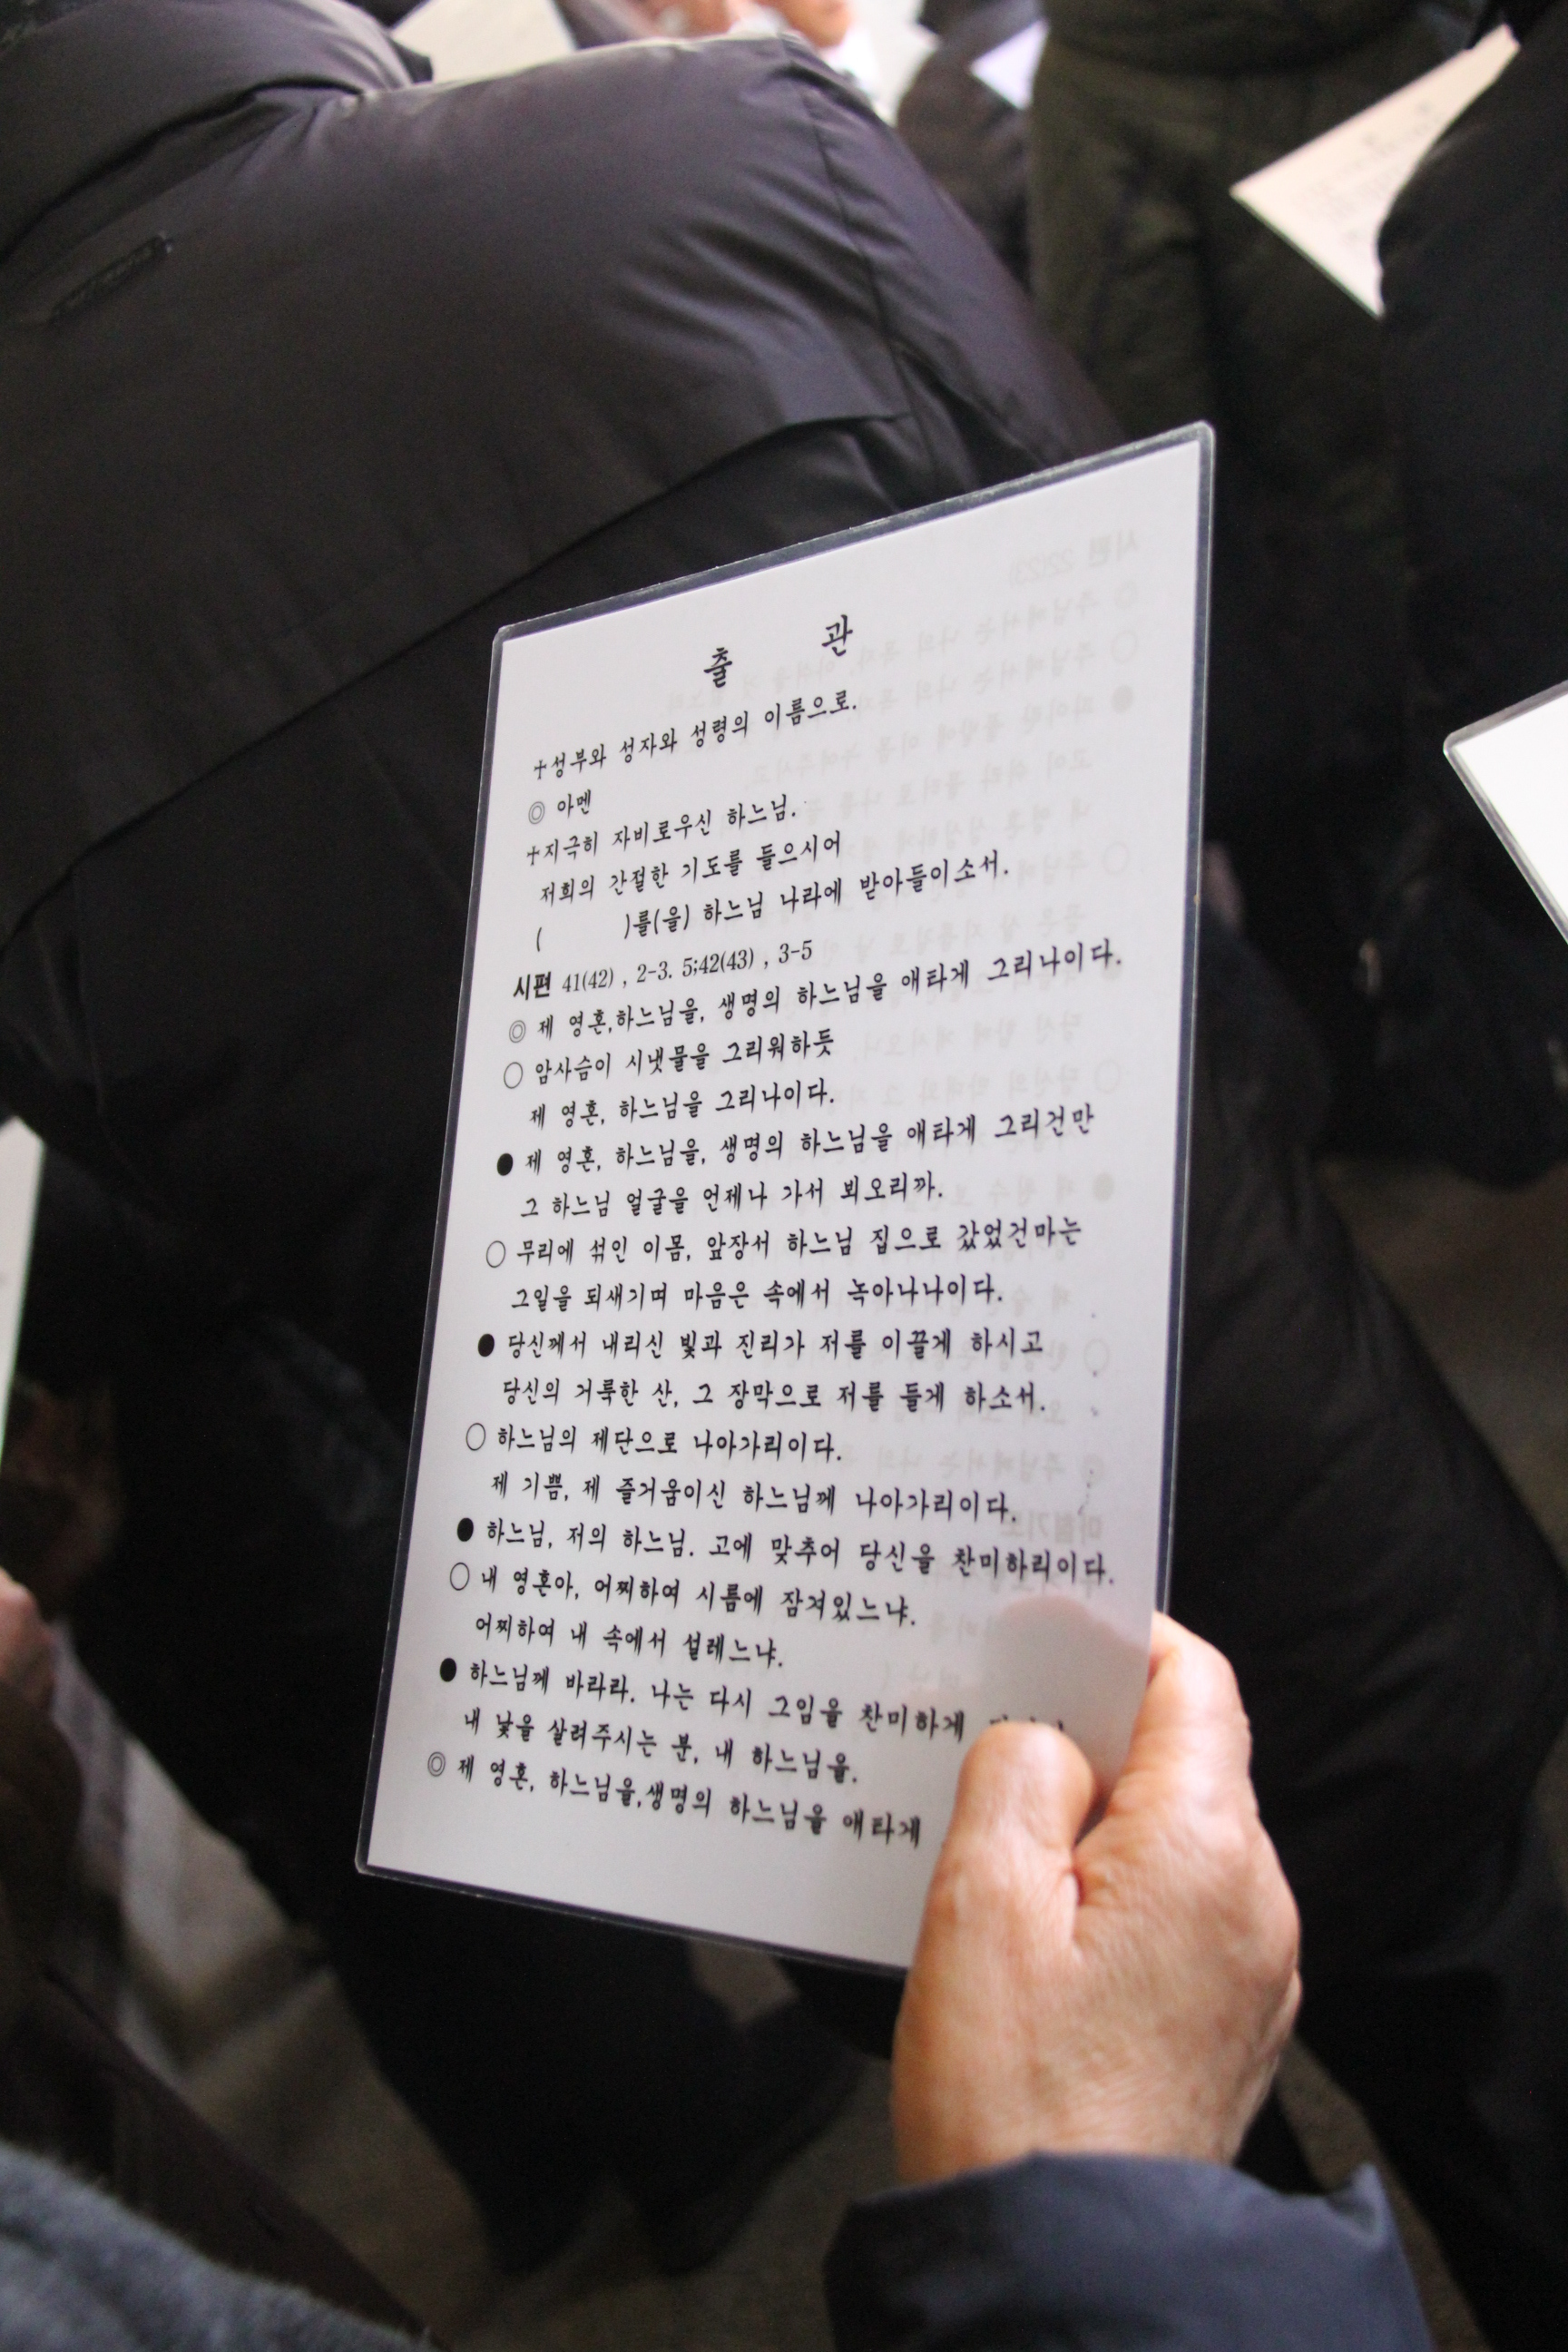 출 관
+성부와 성자와 성령의 이름으로.
◎ 아멘
+지극히 자비로우신 하느님.
저희의 간절한 기도를 들으시어
( )를(을) 하느님 나라에 받아들이소서.
시편 41(42) , 2-3. 5;42(43) , 3-5
◎ 제 영혼,하느님을, 생명의 하느님을 애타게 그리나이다.
○ 암사슴이 시냇물을 그리워하듯
제 영혼, 하느님을 그리나이다.
● 제 영혼, 하느님을, 생명의 하느님을 애타게 그리건만
그 하느님 얼굴을 언제나 가서 뵈오리까.
○ 무리에 섞인 이몸, 앞장서 하느님 집으로 갔었건마는
그일을 되새기며 마음은 속에서 녹아나나이다.
● 당신께서 내리신 빛과 진리가 저를 이끌게 하시고
당신의 거룩한 산, 그 장막으로 저를 들게 하소서.
○ 하느님의 제단으로 나아가리이다.
제 기쁨, 제 즐거움이신 하느님께 나아가리이다.
● 하느님, 저의 하느님. 고에 맞추어 당신을 찬미하리이다.
○ 내 영혼아, 어찌하여 시름에 잠겨있느냐.
어찌하여 내 속에서 설레느냐.
● 하느님께 바라라. 나는 다시 그임을 찬미하게
내 낯을 살려주시는 분, 내 하느님을.
◎ 제 영혼, 하느님을,생명의 하느님을 애타게